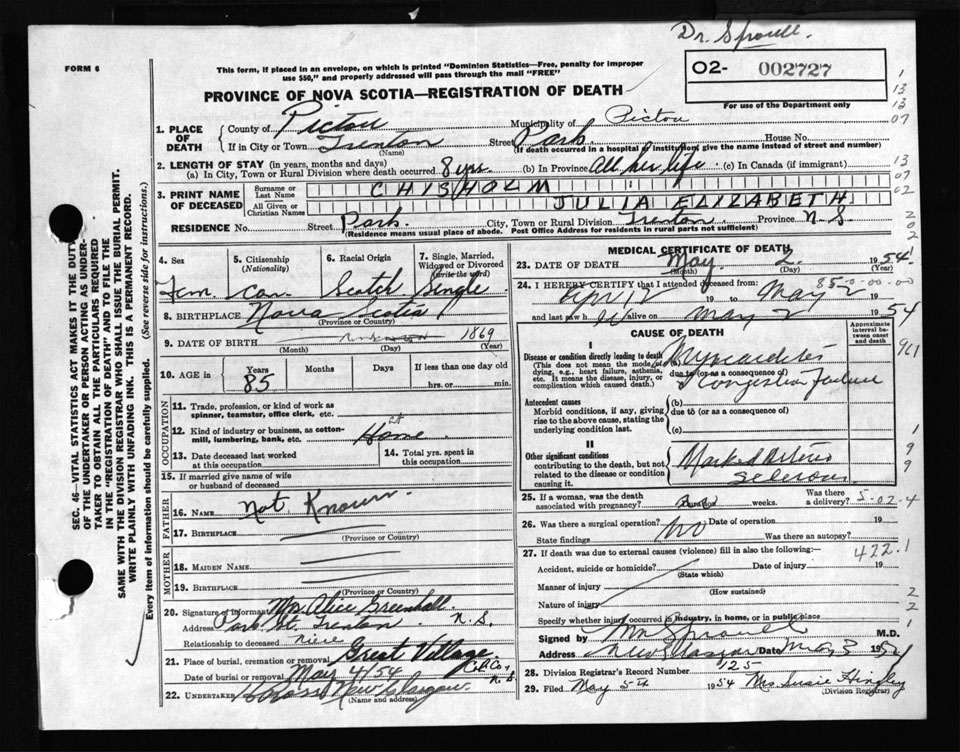 Dr. Sproull
FORM 6
This form, if placed in an envelope, on which is printed "Dominion Statistics—Free, penalty for improper
use $50," and properly addressed will pass through the mail "FREE"
O2- 002727
For use of the Department only
PROVINCE OF NOVA SCOTIA—REGISTRATION OF DEATH
1
13
13
07
1. PLACE OF DEATH
County of Pictou Municipality of Pictou
If in City or Town Trenton Street Park House No.
(Name) (If death occurred in a hospital or institution, give the name instead of street and number)
2. LENGTH OF STAY (in years, months and days)
(a) In City, Town or Rural Division where death occurred 8 yrs. (b) In Province All her life (c) In Canada (if immigrant)
13
07
02
3. PRINT NAME OF DECEASED
Surname or Last Name CHISHOLM
All Given or Christian Names JULIA ELIZABETH
RESIDENCE No. Street Park City, Town or Rural Division Trenton Province N.S.
(Residence means usual place of abode. Post Office Address for residents in rural parts not sufficient)
2
0
2
SEC. 46—VITAL STATISTICS ACT MAKES IT THE DUTY
OF THE UNDERTAKER OR PERSON ACTING AS UNDER-
TAKER TO OBTAIN ALL THE PARTICULARS REQUIRED
IN THE "REGISTRATION OF DEATH" AND TO FILE THE
SAME WITH THE DIVISION REGISTRAR WHO SHALL ISSUE THE BURIAL PERMIT.
WRITE PLAINLY WITH UNFADING INK. THIS IS A PERMANENT RECORD.
Every item of information should be carefully supplied. (See reverse side for instructions.)
4. Sex
5. Citizenship (Nationality)
6. Racial Origin
7. Single, Married, Widowed or Divorced (Write the word)
Fem Can Scotch Single
8. BIRTHPLACE Nova Scotia
(Province or Country)
9. DATE OF BIRTH 1869
(Month) (Day) (Year)
10. AGE in
Years Months Days If less than one day
85 hrs. or min.
OCCUPATION
11. Trade, profession, or kind of work as
spinner, teamster, office clerk, etc.
12. Kind of industry or business, as cotton-
mill, lumbering, bank, etc. at Home
13. Date deceased last worked
at this occupation
14. Total yrs. spent in
this occupation
15. If married give name of wife
or husband of deceased
FATHER
16. Name Not Known
17. Birthplace
(Province or Country)
MOTHER
18. MAIDEN NAME
19. BIRTHPLACE
(Province or Country)
20. Signature of informant Mrs. Alice Greenhall.
Address Park St. Trenton N.S.
Relationship to deceased niece
21. Place of burial, cremation or removal Great Village
Col Co. N.S.
Date of burial or removal May 4/54
22. UNDERTAKER New Glasgow
(Name and address)
MEDICAL CERTIFICATE OF DEATH
23. DATE OF DEATH May 2 1954
(Month) (Day) (Year)
85-0-00-00
24. I HEREBY CERTIFY that I attended deceased from:
Apr 12 19 to May 2
and last saw h alive on May 2 1954
CAUSE OF DEATH
Approximate interval between onset and death
I
Disease or condition directly leading to death
(This does not mean the mode of dying, e.g., heart failure, asthenia, etc. It means the disease, injury, or complication which caused death.)
(a) Myocarditis
due to (or as a consequence of)
Congestive Failure
961
Antecedent causes
Morbid conditions, if any, giving
rise to the above cause, stating the
underlying condition last.
(b)
due to (or as a consequence of)
(c)
1
II
Other significant conditions
contributing to the death, but not
related to the disease or condition
causing it.
Marked Arterio
Sclerosis
9
9
25. If a woman, was the death
associated with pregnancy? weeks. Was there a delivery?
5-02-4
26. Was there a surgical operation? No Date of operation 19
State findings Was there an autopsy?
27. If death was due to external causes (violence) fill in also the following:—
422.1
Accident, suicide or homicide? Date of injury 19
(State which)
Manner of injury
(How sustained)
Nature of injury
2
2
Specify whether injury occurred in industry, in home, or in public place
1
Signed by Wm Sproull M.D.
Address New Glasgow Date May 3 1954
28. Division Registrar's Record Number 125
29. Filed May 5th 1954 Mrs Susie Hingley
(Division Registrar)